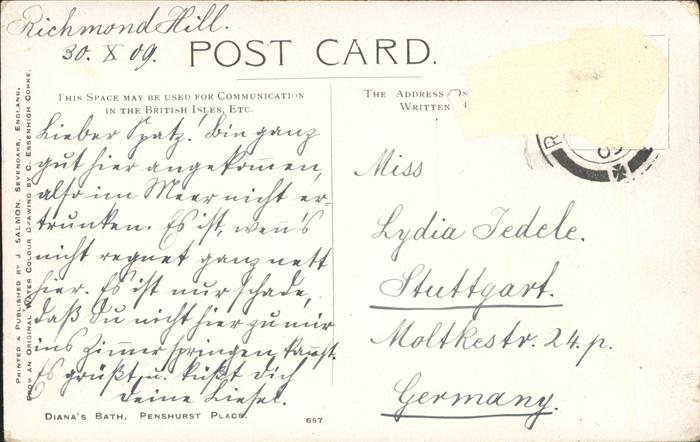 Richmond Hill.
30. X 09.
POST CARD.
THIS SPACE MAY BE USED FOR COMMUNICATION
IN THE BRITISH ISLES, ETC.
THE ADDRESS ON
WRITTEN
Lieber Spatz! Bin ganz
gut hier angekom̅en,
also im Meer nicht er-
trunken. Es ist, wen̅'s
nicht regnet ganz nett
hier. Es ist nur schade,
daß Du nicht hier zu mir
ins Zim̅er springen kan̅st.
Es grüßt u. küßt Dich
Deine Liesel.
Miss
Lydia Jedele.
Stuttgart.
Moltkestr. 24.p.
Germany.
PRINTED & PUBLISHED BY J. SALMON, SEVENOAKS, ENGLAND,
FROM AN ORIGINAL WATER COLOUR DRAWING BY C. ESSENHIGH CORKE.
DIANA'S BATH, PENSHURST PLACE.
657